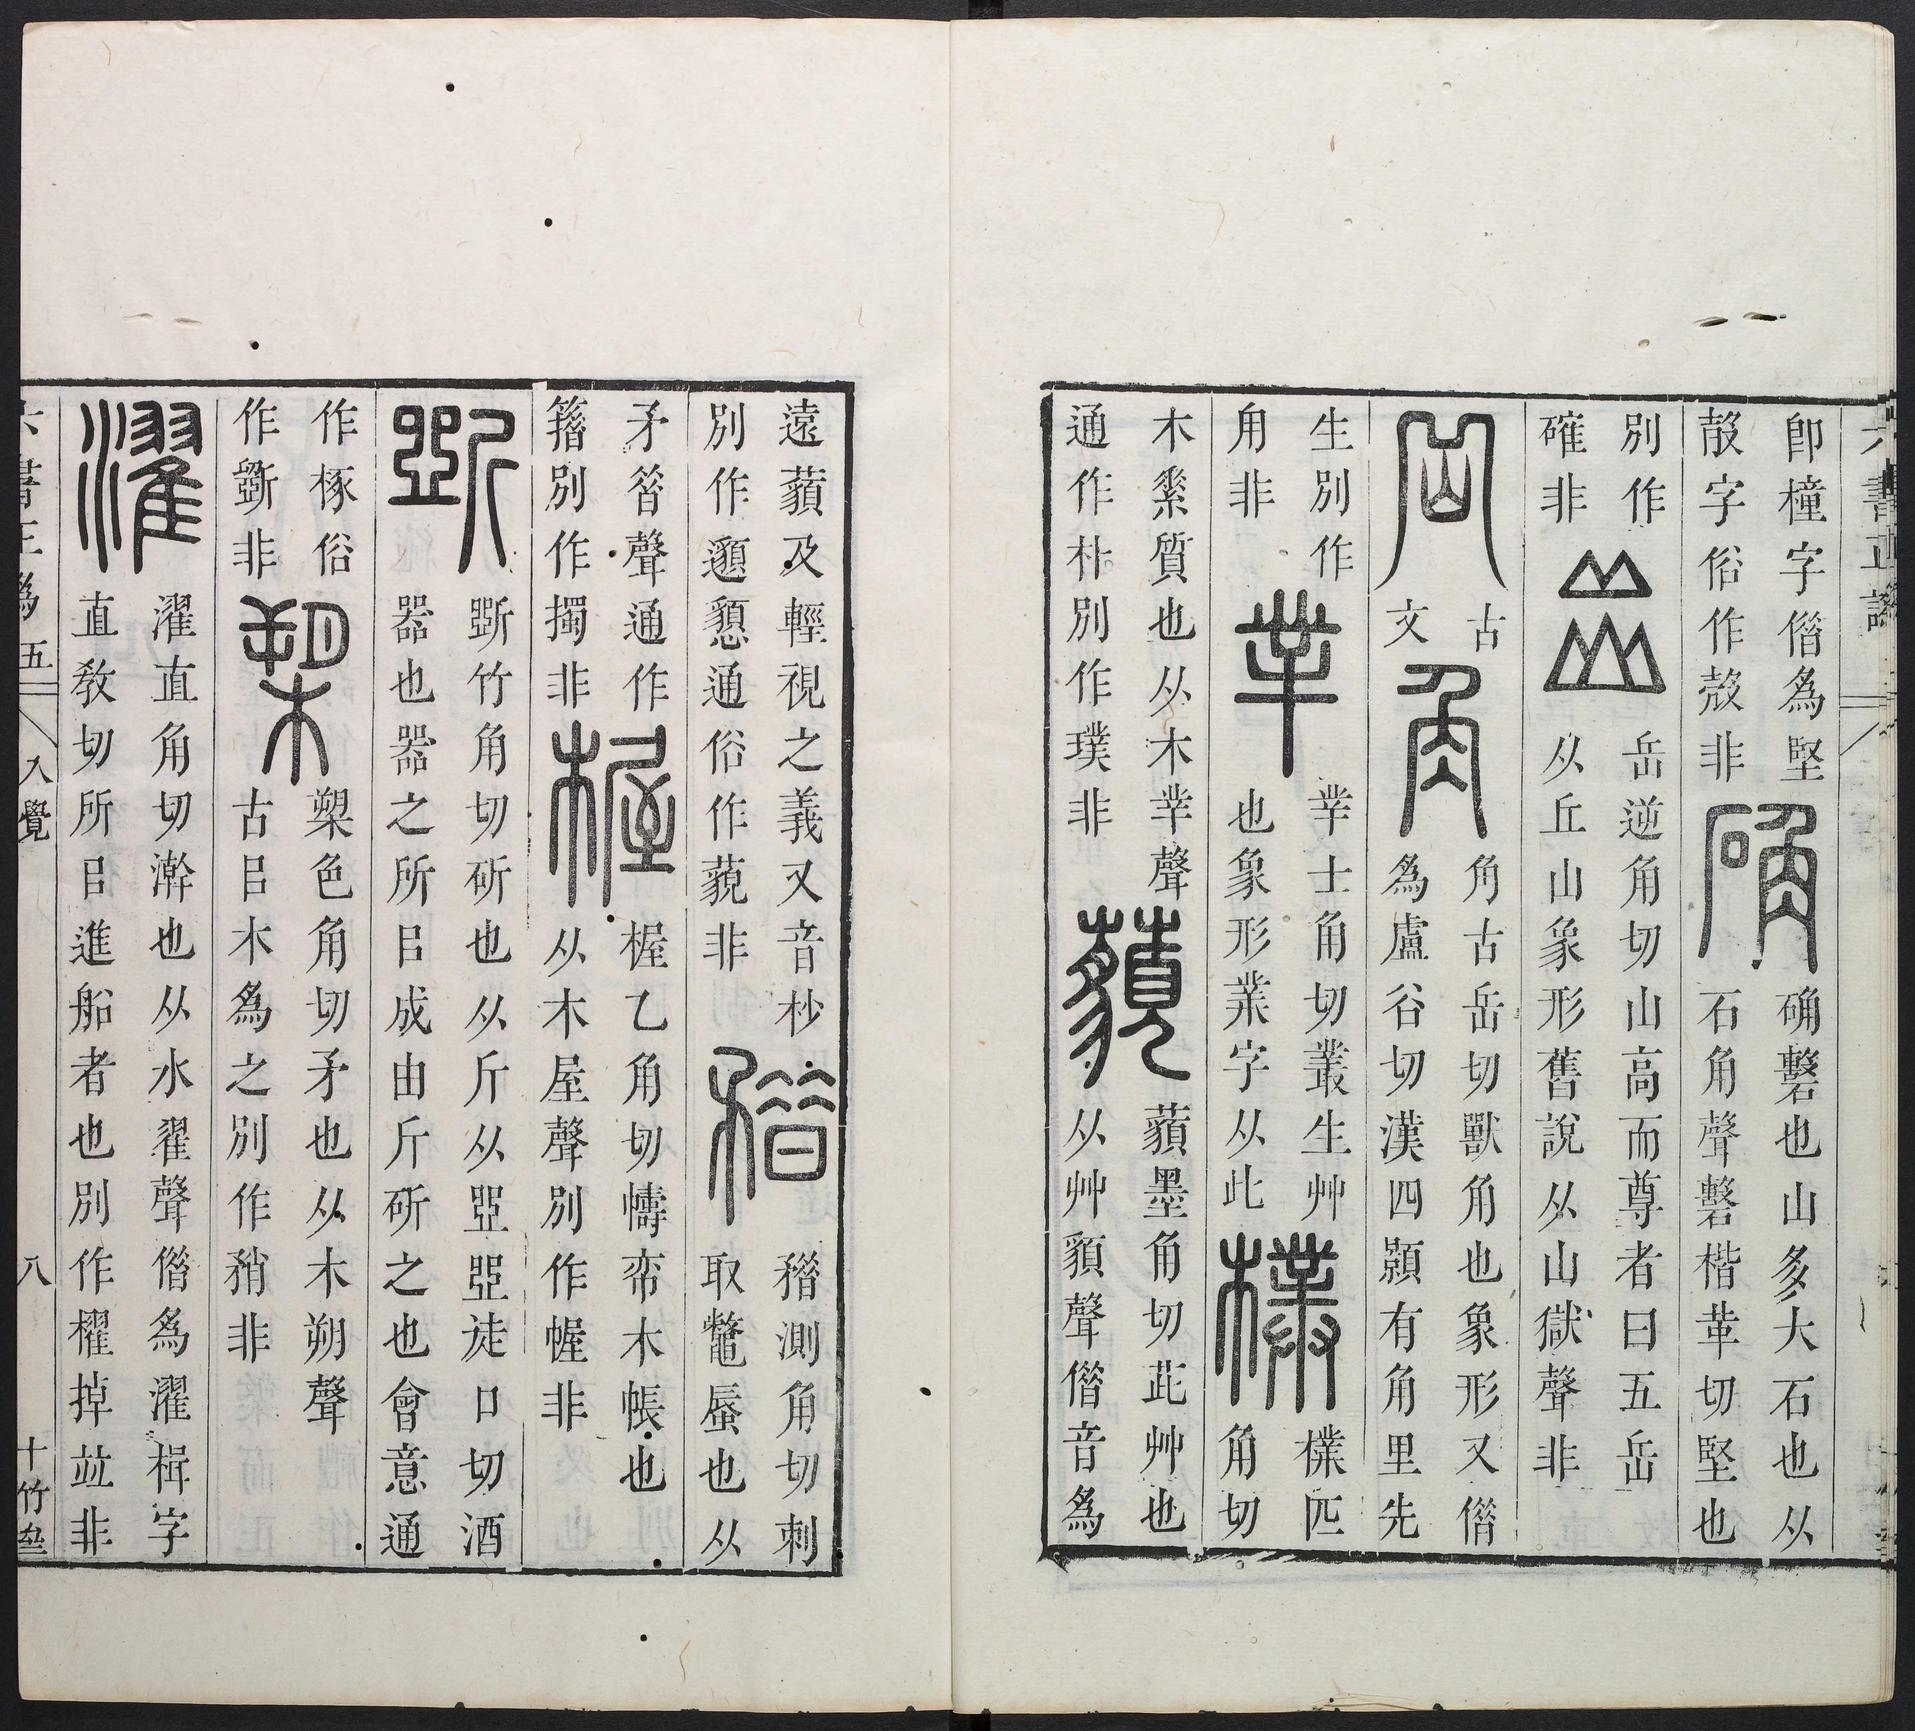 六書正譌
卽橦字僭爲堅
㱿字俗作殼非
确
确礊也山多大石也从
石角聲礊楷革切堅也
別作
確非
岳逆角切山高而尊者曰五岳
从丘山象形舊說从山獄聲非
古
文
角
角古岳切獸角也象形又僭
爲盧谷切漢四顥有角里先
生別作
角非
丵
丵士角切叢生艸
也象形業字从此
樸
樸匹
角切
木素質也从木丵聲
通作朴別作璞非
藐
藐墨角切茈艸也
从艸䫉聲僭音爲
遠藐及輕視之義又音杪
別作邈懇通俗作藐非
矠
矠測角切刺
取鼈蜃也从
矛聲通作
簎別作擉非
楃
楃乙角切幬帟木帳也
从木屋聲別作幄非
斲
斲竹角切斫也从斤从㔽㔽徒口切酒
器也器之所㠯成由斤斫之也會意通
作椓俗
作斵非
槊
槊色角切矛也从木朔聲
古㠯木爲之別作矟非
濯
濯直角切澣也从水翟聲僭爲濯楫字
直敎切所㠯進船者也別作櫂掉竝非
六書正譌五 入覺 八 十竹齋